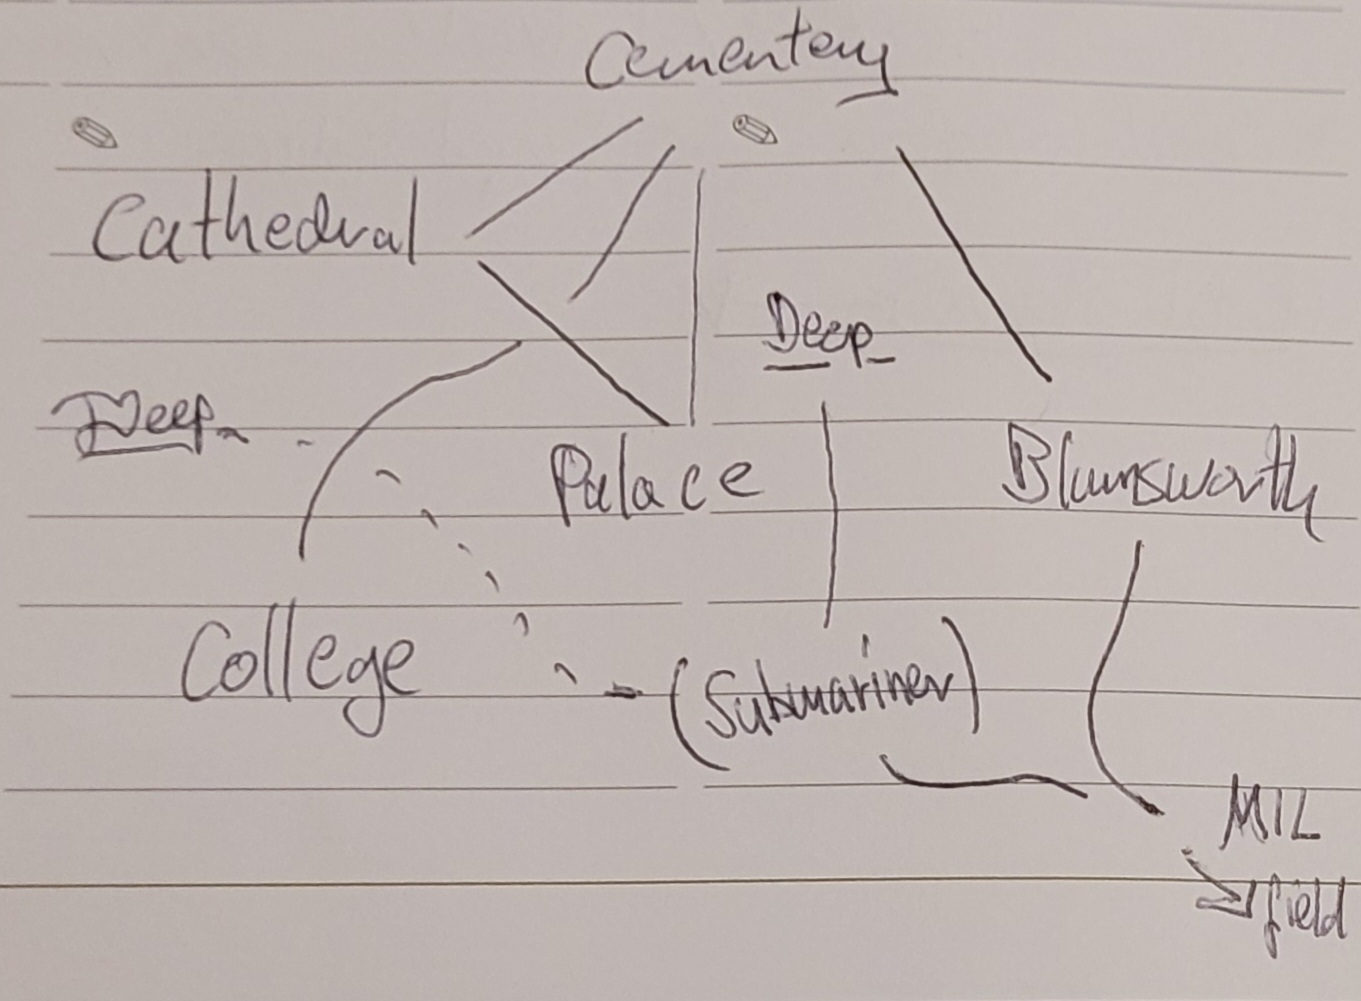 Cementery
Cathedral
Deep
Deep
Palace
Blumsworth
College
(Submariner)
MIL
field